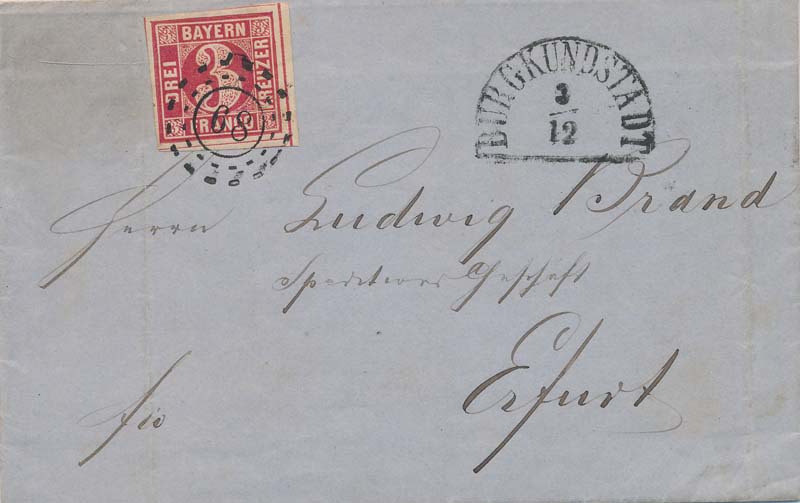 BAYERN
DREI
3
KREUZER
FRANCO
68
BURGKUNDSTADT
3
12
Herrn Ludwig Brand
Speditions Geschäft
Erfurt
fco